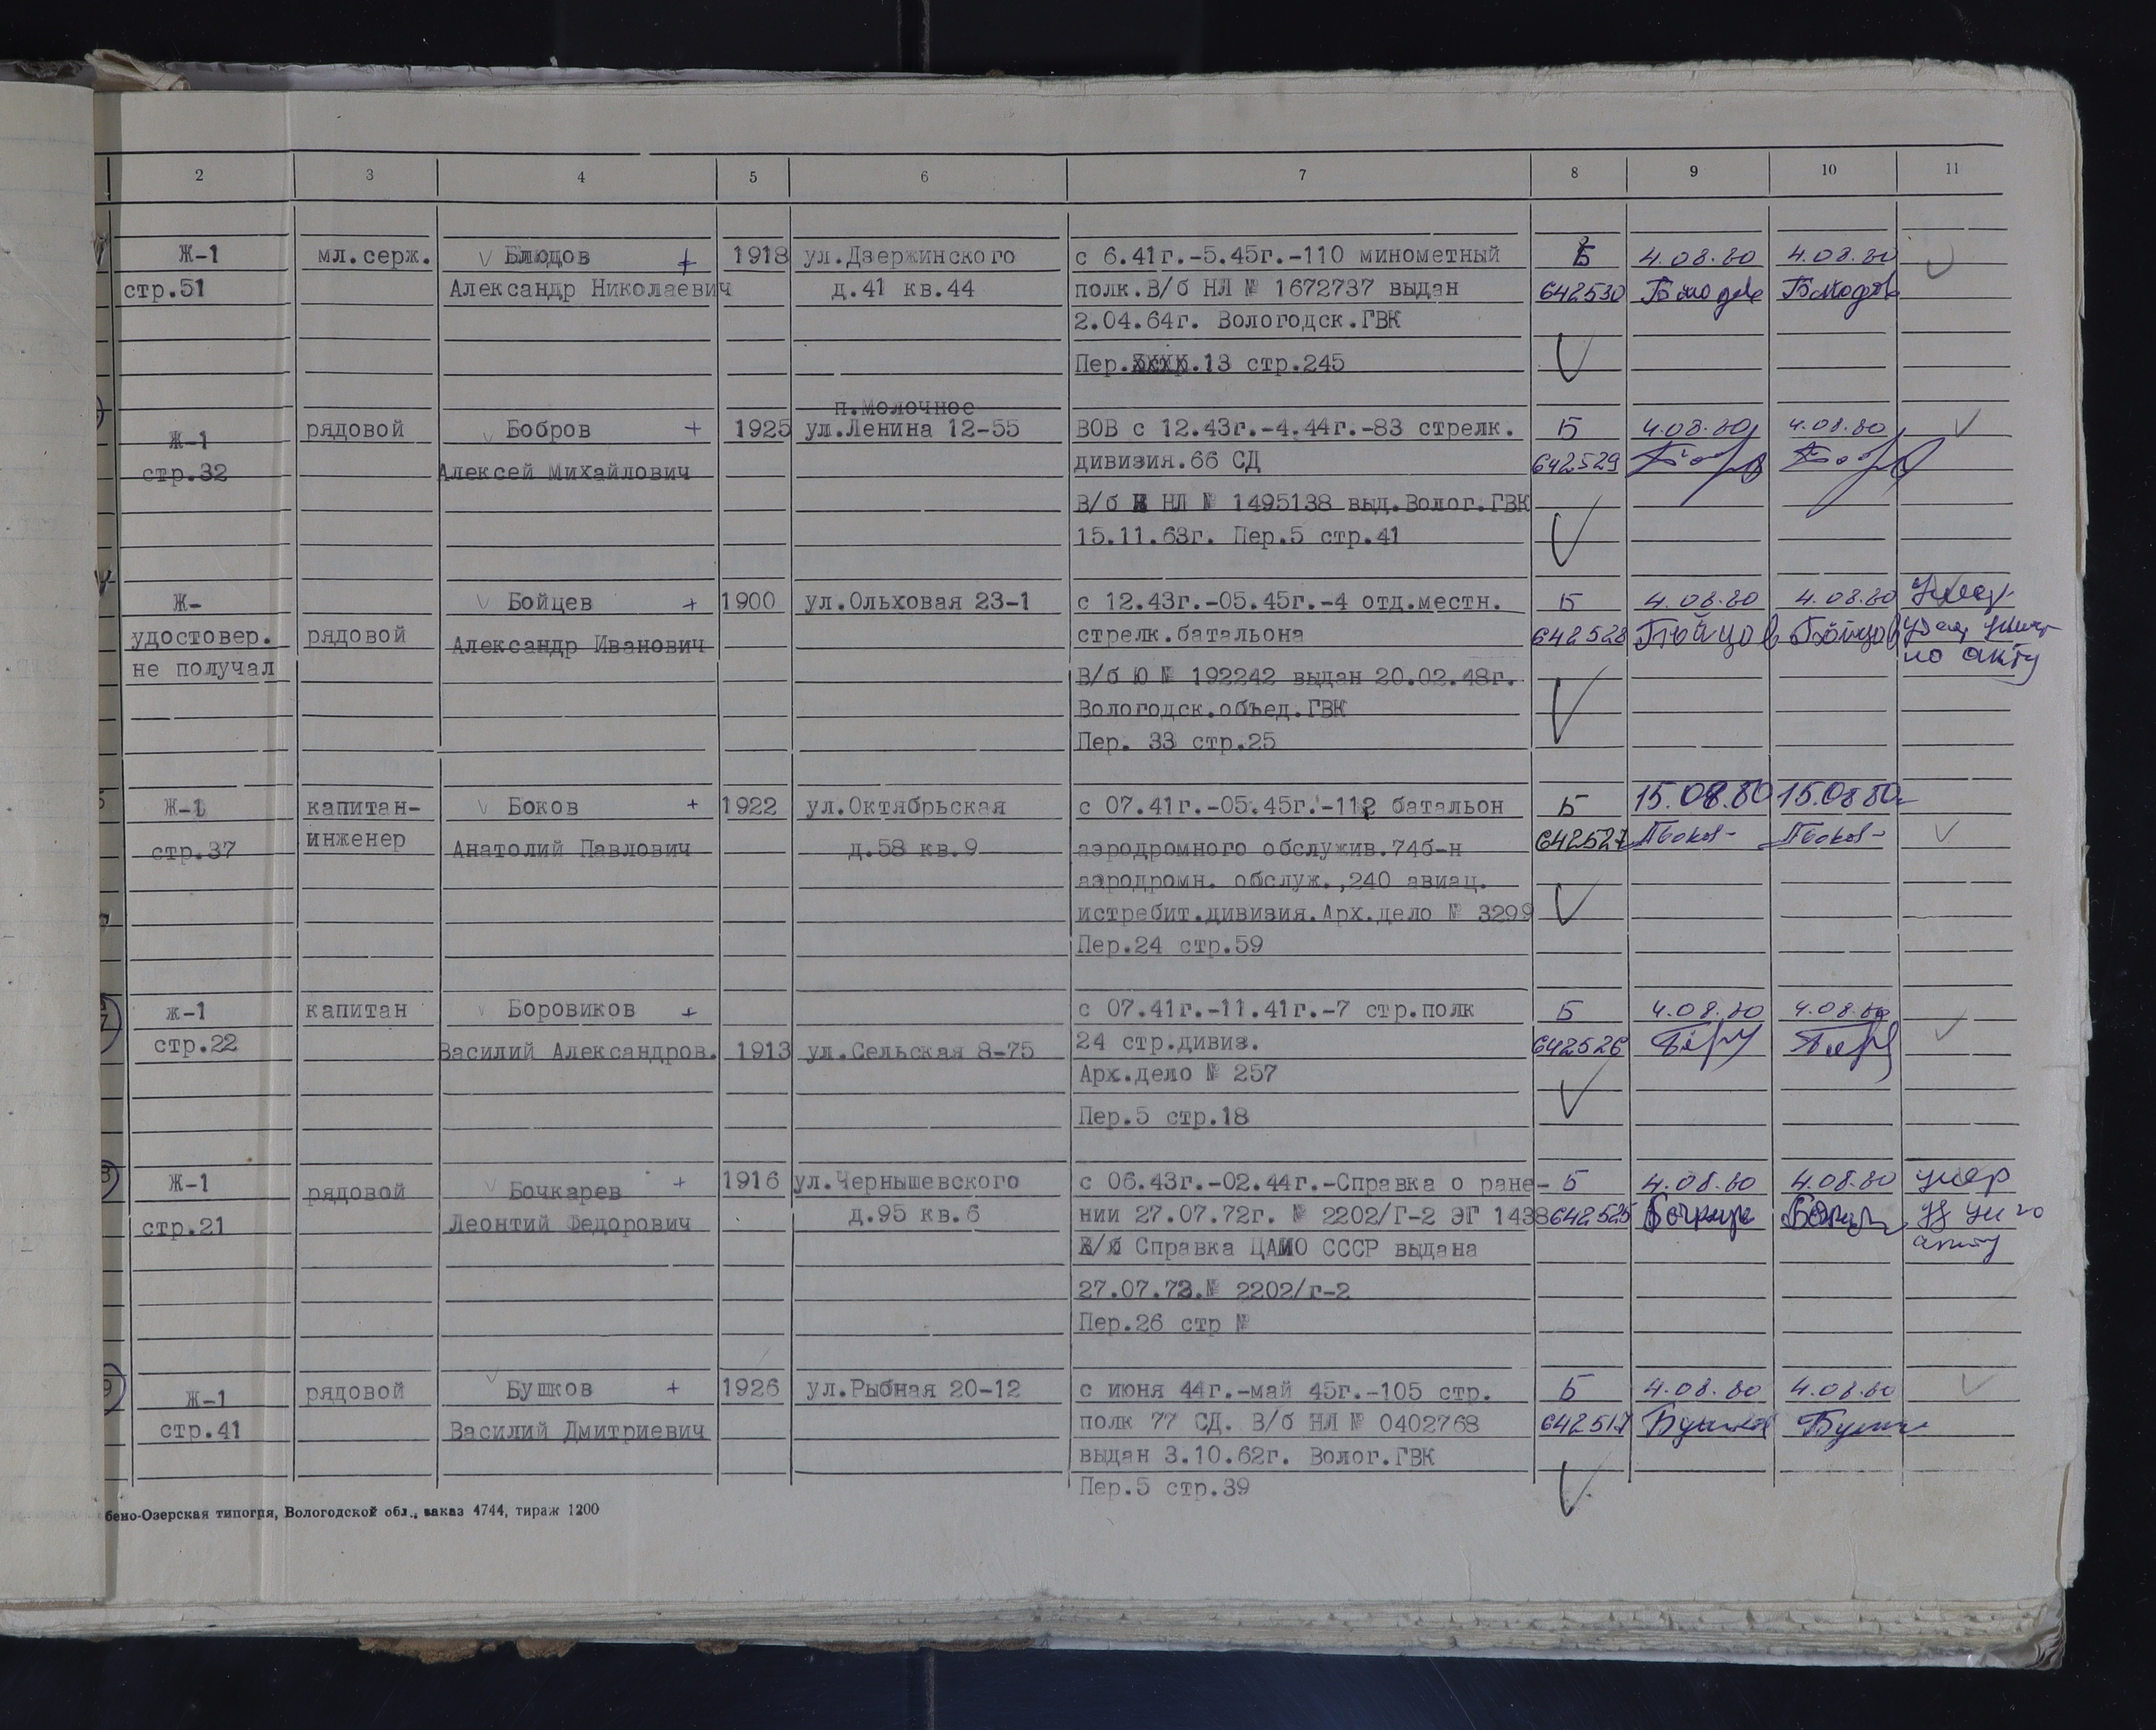 2 3 4 5 6 7 8 9 10 11
Ж-1 мл.серж. Блюдов + 1918 ул.Дзержинского с 6.41г.-5.45г.-110 минометный Б 4.08.80 4.08.80
стр.51 Александр Николаевич д.41 кв.44 полк.В/б НЛ № 1672737 выдан 642530 Блюдов Блюдов
2.04.64г. Вологодск.ГВК
Пер. 13 стр.245
п.Молочное
Ж-1 рядовой Бобров + 1925 ул.Ленина 12-55 ВОВ с 12.43г.-4.44г.-83 стрелк. Б 4.08.80 4.08.80
стр.32 Алексей Михайлович дивизия.66 СД 642529
В/б НЛ № 1495138 выд.Волог.ГВК
15.11.63г. Пер.5 стр.41
Ж- Бойцев + 1900 ул.Ольховая 23-1 с 12.43г.-05.45г.-4 отд.местн. Б 4.08.80 4.08.80 Умер
удостовер. рядовой Александр Иванович стрелк.батальона 642528 Бойцов Бойцов
не получал по акту
В/б Ю № 192242 выдан 20.02.48г.
Вологодск.объед.ГВК
Пер. 33 стр.25
Ж-1 капитан- Боков + 1922 ул.Октябрьская с 07.41г.-05.45г.-112 батальон Б 15.08.80 15.08.80г
стр.37 инженер Анатолий Павлович д.58 кв.9 аэродромного обслужив.74б-н 642527 Боков Боков
аэродромн. обслуж.,240 авиац.
истребит.дивизия.Арх.дело № 3299
Пер.24 стр.59
ж-1 капитан Боровиков + с 07.41г.-11.41г.-7 стр.полк Б 4.08.80 4.08.80
стр.22 Василий Александров. 1913 ул.Сельская 8-75 24 стр.дивиз. 642526
Арх.дело № 257
Пер.5 стр.18
Ж-1 рядовой Бочкарев + 1916 ул.Чернышевского с 06.43г.-02.44г.-Справка о ране- Б 4.08.80 4.08.80 умер
стр.21 Леонтий Федорович д.95 кв.6 нии 27.07.72г. № 2202/Г-2 ЭГ 1438 642525
Справка ЦАМО СССР выдана акту
27.07.72.№ 2202/г-2
Пер.26 стр №
Ж-1 рядовой Бушков + 1926 ул.Рыбная 20-12 с июня 44г.-май 45г.-105 стр. Б 4.08.80 4.08.80
стр.41 Василий Дмитриевич полк 77 СД. В/б НЛ № 0402768 642517 Бушков
выдан 3.10.62г. Волог.ГВК
Пер.5 стр.39
бено-Озерская типогря, Вологодской обл., заказ 4744, тираж 1200